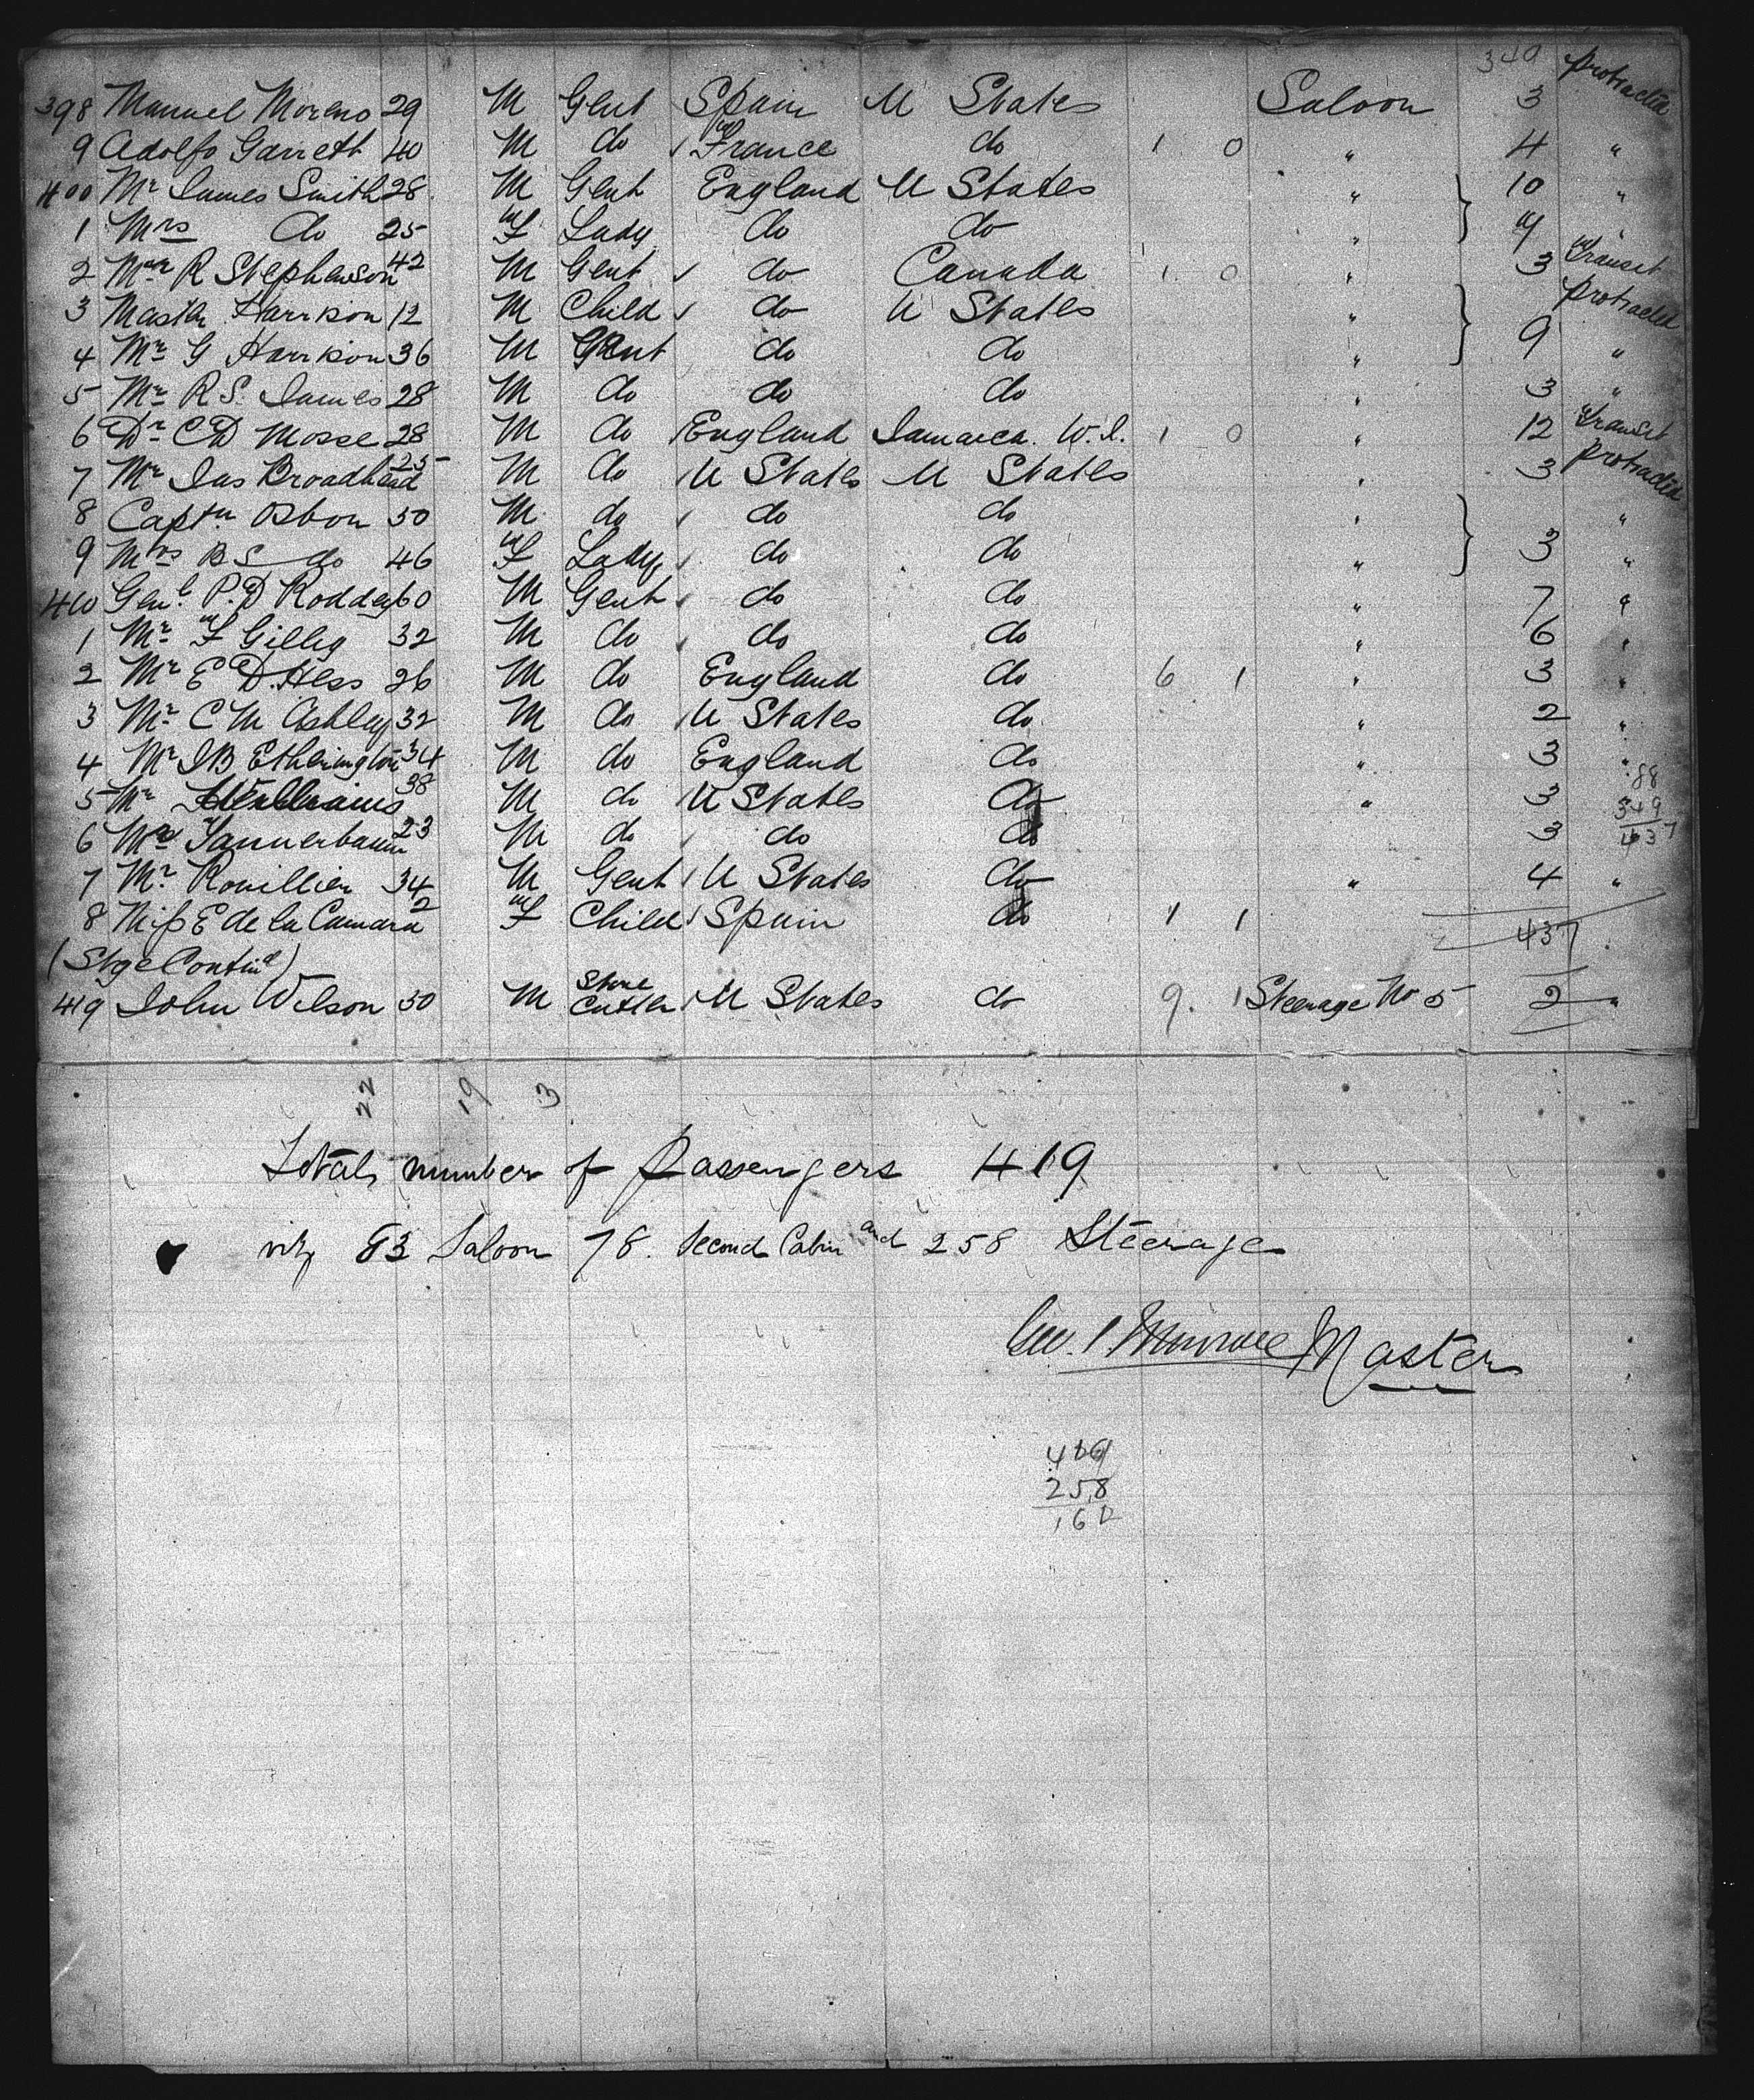 349 protracted
398 Manuel Moreno 29 M Gent Spain U States Saloon 3
9 Adolfo Garreth 40 M do France do 1 0 " 4 "
400 Mr James Smith 28 M Gent England U States " 10 "
1 Mrs do 25 F Lady do do "
2 Mr R Stephenson 42 M Gent do Canada 1 0 " 3 Transit
3 Master Harrison 12 M Child do U States " protracted
4 Mr G Harrison 36 M Gent do do " 9 "
5 Mr R S. James 28 M do do do " 3 "
6 Dr C D Mosse 28 M do England Jamaica. W.I. 1 0 " 12 Transit
7 Mr Jas Broadhead 25 M do U States U States " 3 protracted
8 Captn Osbon 50 M do do do " "
9 Mrs B S do 46 F Lady do do " 3 "
410 Genl P. D Roddey 60 M Gent do do " 7 "
1 Mr F Gilley 32 M do do do " 6 "
2 Mr E D. Hess 26 M do England do 6 1 " 3 "
3 Mr C M Ashley 32 M do U States do " 2 "
4 Mr J B Etherington 34 M do England do " 3 "
88
5 Mr Williams 38 M do U States do " 3 349
6 Mr Tannerbaum 23 M do do do 3 437
7 Mr Rouillier 34 M Gent U States do " 4 "
8 Miss E de la Camara 2 F Child Spain do 1 1
437
(Stge Contind)
419 John Wilson 50 M Stone Cutter U States do 9. 1 Steerage No 5 2 "
22 19 3
Totals number of Passengers 419
viz 83 Saloon 78. Second Cabin and 258 Steerage
Master
258